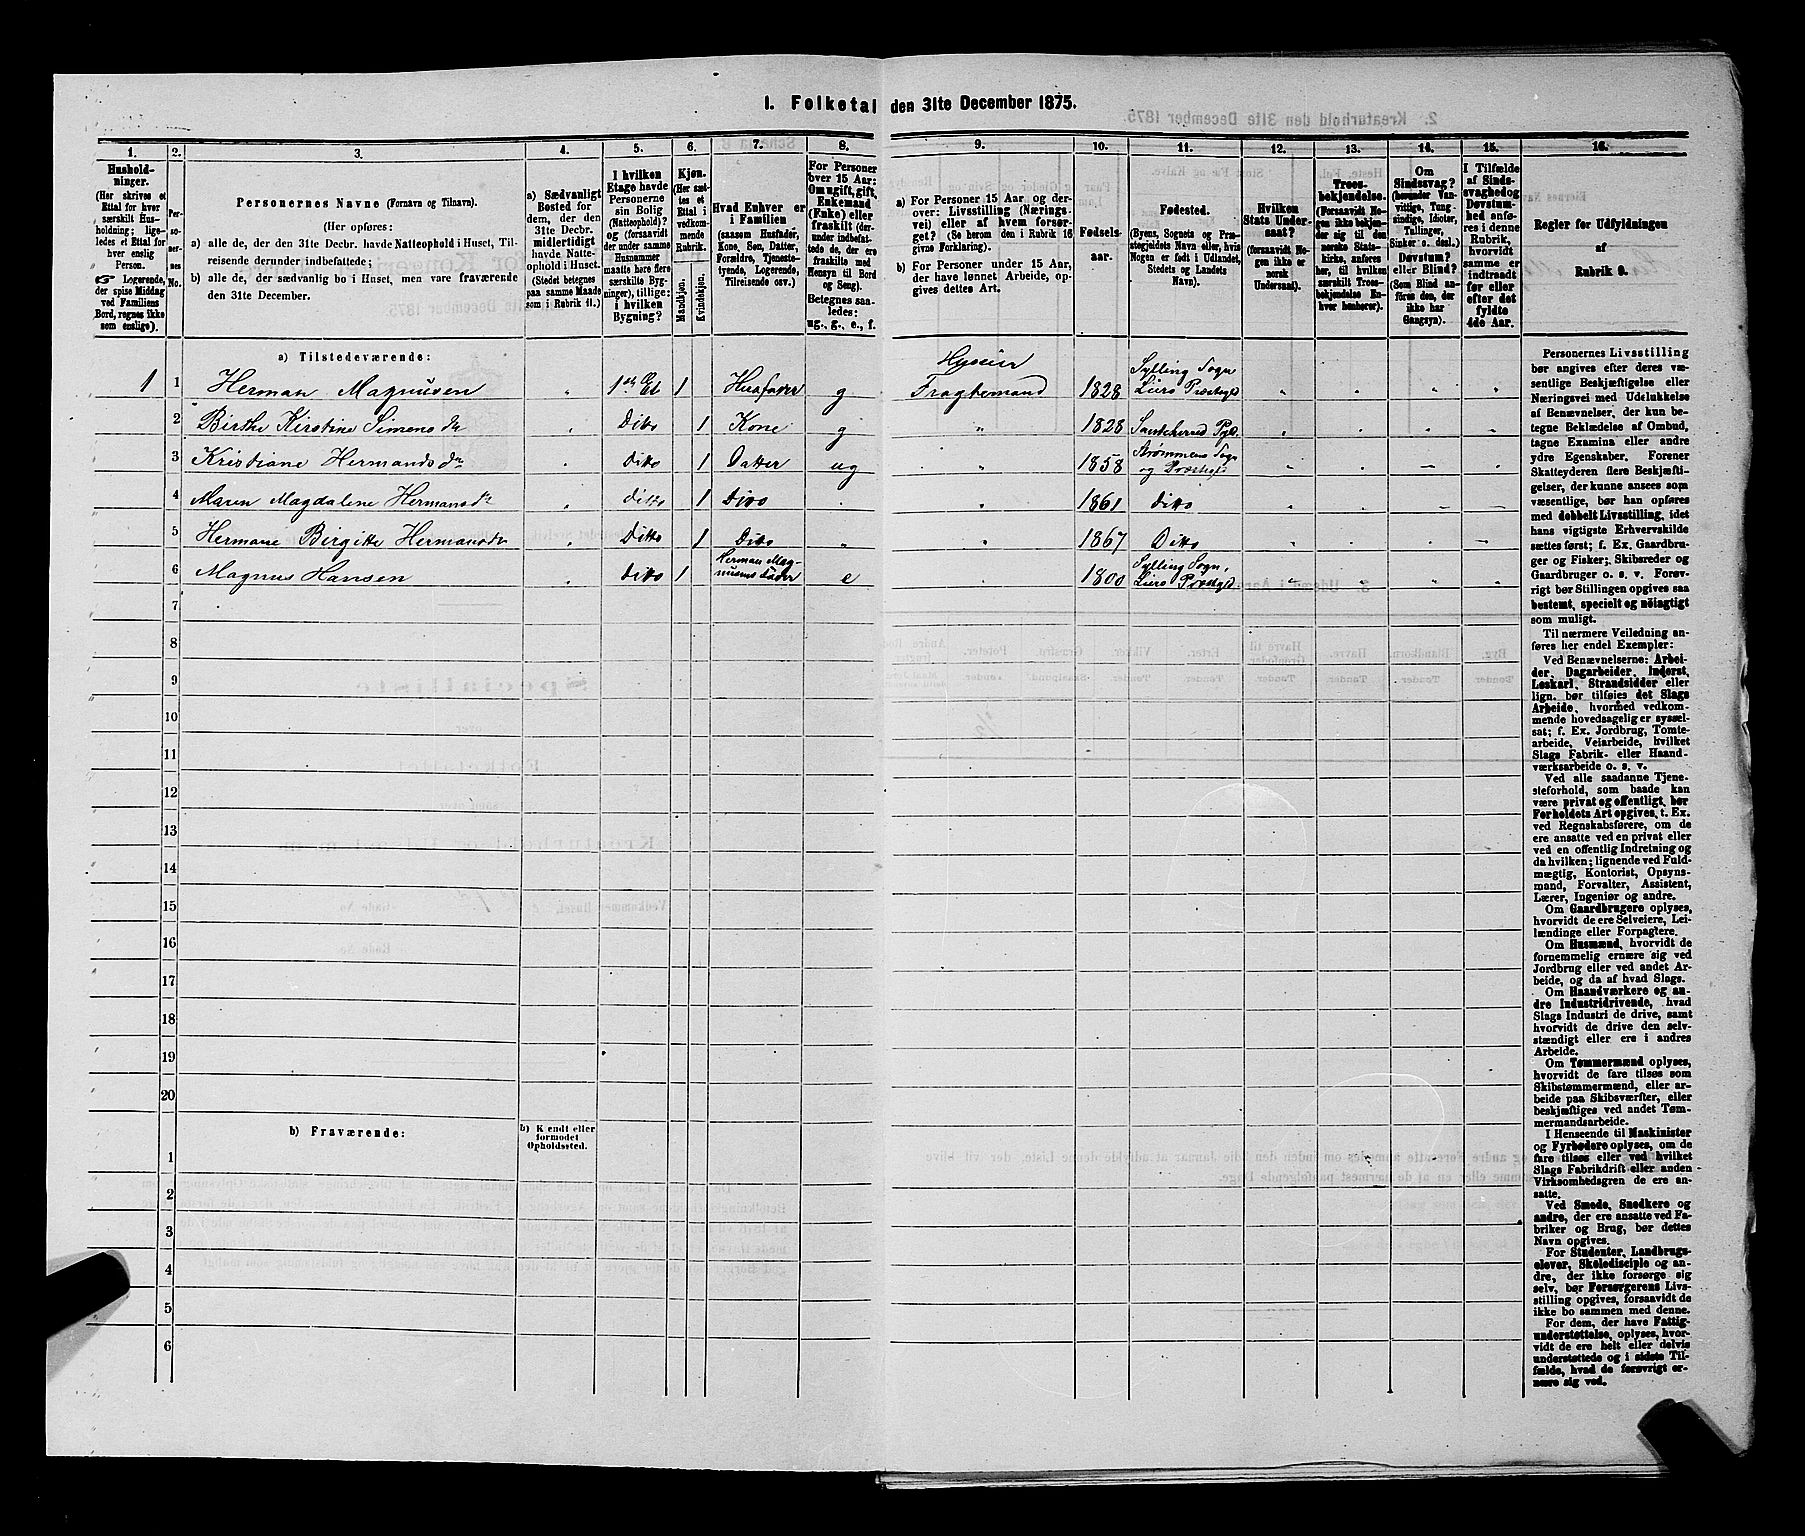 I. Folketal den 31te December 1875.
1. 2. 3. 4. 5. 6. 7. 8. 9. 10. 11. 12. 13. 14. 15. 16.
Hushold-
ninger.
(Her skrives et
Ettal for hver
særskilt Hus-
holdning; lige-
ledes et Ettal for
hver enslig
Person.
Logerende,
der spise Middag
ved Familiens
Bord, regnes ikke
som enslige).
Per-
so-
ner-
nes
No.
Personernes Navne (Fornavn og Tilnavn).
(Her opføres:
a) alle de, der den 31te Decbr. havde Natteophold i Huset, Til-
reisende derunder indbefattede;
b) alle de, der sædvanlig bo i Huset, men vare fraværende
den 31te December.
a) Sædvanligt
Bosted for
dem, der den
31te Decbr.
midlertidigt
havde Natte-
ophold i Huset.
(Stedet betegnes
paa samme Maade
som i Rubrik 11.)
I hvilken
Etage havde
Personerne
sin Bolig
(Natteophold)?
og (forsaavidt
der under samme
Husnummer
maatte høre flere
særskilte Byg-
ninger), tillige:
i hvilken
Bygning?
Kjøn.
(Her sæt-
tes et
Ettal i
vedkom-
mende
Rubrik.
Mandkjøn.
Kvindekjøn.
Hvad Enhver er
i Familien
(saasom Husfader,
Kone, Søn, Datter,
Forældre, Tjeneste-
tyende, Logerende,
Tilreisende osv.)
For Personer
over 15 Aar:
Om ugift, gift,
Enkemand
(Enke) eller
fraskilt (der-
under indbefat-
tede de, der ere
fraskilte med
Hensyn til Bord
og Seng).
Betegnes saa-
ledes:
ug., g., e., f.
a) For Personer 15 Aar og der-
over: Livsstilling (Nærings-
vei) eller af hvem forsør-
get? (Se herom den i Rubrik 16
givne Forklaring).
b) For Personer under 15 Aar,
der have lønnet Arbeide, op-
gives dettes Art.
Fødsels-
aar.
Fødested.
(Byens, Sognets og Præ-
stegjeldets Navn eller, hvis
Nogen er født i Udlandet,
Stedets og Landets
Navn).
Hvilken
Stats Under-
saat?
(forsaavidt No-
gen ikke er
norsk
Undersaat).
Troes-
bekjendelse.
(Forsaavidt No-
gen ikke beken-
der sig til den
norske Stats-
kirke, anføres
her, til hvilken
særskilt Troes-
bekjendelse En-
hver henhører).
Om
Sindssvag?
(herunder Van-
vittige, Tung-
sindige, Idioter,
Tullinger,
Sinker o. desl.)
Døvstum?
eller Blind?
(Som Blind an-
føres den, der
ikke har
Gangsyn).
I Tilfælde
af Sinds-
svaghed og
Døvstum-
hed anfø-
res i denne
Rubrik,
hvorvidt
samme er
indtraadt
før eller
efter det
fyldte
4de Aar.
Regler for Udfyldningen
af
Rubrik 9.
a) Tilstedeværende:
1 1 Herman Magnusen " 1ste Et 1 Husfader g Huseier Fragtemand 1828 Sylling Sogn Liers Præstegld " " " "
2 Birthe Kirstine Simens dtr " Ditto 1 Kone g " 1828 Pgld. " " " "
3 Kristiane Hermands dtr " Ditto 1 Datter ug " 1858 Strømmens Sogn og Præstegld " " " "
4 Maren Magdalene Hermansdtr " Ditto 1 Ditto " " 1861 Ditto " " " "
5 Hermane Birgitte Hermansdtr " Ditto 1 Ditto " " 1867 Ditto " " " "
6 Magnus Hansen " Ditto 1 Herman Magnusens Fader e " 1800 Sylling Sogn, Liers Præstegld " " " "
7
8
9
10
11
12
13
14
15
16
17
18
19
20
b) Fraværende:
b) Kjendt eller
formodet
Opholdssted.
1
2
3
4
5
6
Personernes Livsstilling
bør angives efter deres væ-
sentlige Beskjæftigelse eller
Næringsvei med Udelukkelse
af Benævnelser, der kun be-
tegne Beklædelse af Ombud,
tagne Examina eller andre
ydre Egenskaber. Forener
Skatteyderen flere Beskjæfti-
gelser, der kunne ansees som
væsentlige, bør han opføres
med dobbelt Livsstilling, idet
hans vigtigste Erhvervskilde
sættes først; f. Ex. Gaardbru-
ger og Fisker; Skibsreder og
Gaardbruger o. s. v. Forøv-
rigt bør Stillingen opgives saa
bestemt, specielt og nøiagtigt
som muligt.
Til nærmere Veiledning an-
føres her endel Exempler:
Ved Benævnelserne: Arbei-
der, Dagarbeider, Inderst,
Løskarl, Strandsidder eller
lign. bør tilføies det Slags
Arbeide, hvormed vedkom-
mende hovedsagelig er syssel-
sat; f. Ex. Jordbrug, Tomte-
arbeide, Veiarbeide, hvilket
Slags Fabrik- eller Haand-
værksarbeide o. s. v.
Ved alle saadanne Tjene-
steforhold, som baade kan
være privat og offentligt, bør
Forholdets Art opgives, t. Ex.
ved Regnskabsførere, om de
ere ansatte ved en privat eller
ved en offentlig Indretning og
da hvilken; lignende ved Fuld-
mægtig, Kontorist, Opsyns-
mand, Forvalter, Assistent,
Lærer, Ingeniør og andre.
Om Gaardbrugere oplyses,
hvorvidt de ere Selveiere, Lei-
lændinge eller Forpagtere.
Om Husmænd, hvorvidt de
fornemmelig ernære sig ved
Jordbrug eller ved andet Ar-
beide, og da af hvad Slags.
Om Haandværkere og an-
dre Industridrivende, hvad
Slags Industri de drive, samt
hvorvidt de drive den selv-
stændigt eller ere i andres
Arbeide.
Om Tømmermænd oplyses,
hvorvidt de fare tilsøs som
Skibstømmermænd, eller ar-
beide paa Skibsværfter, eller
beskjæftiges ved andet Tøm-
mermandsarbeide.
I Henseende til Maskinister
og Fyrbødere oplyses, om de
fare tilsøs eller ved hvilket
Slags Fabrikdrift eller anden
Virksomhedsgren de ere an-
satte.
Ved Smede, Snedkere og
andre, der ere ansatte ved Fa-
briker og Brug, bør dettes
Navn opgives.
For Studenter, Landbrugs-
elever, Skoledisciple og an-
dre, der ikke forsørge sig
selv, bør Forsørgerens Livs-
stilling opgives, forsaavidt de
ikke bo sammen med denne.
For dem, der have Fattig-
understøttelse, oplyses, hvor-
vidt de ere helt eller delvis
understøttede og i sidste Til-
fælde, hvad de forøvrigt er-
nære sig ved.